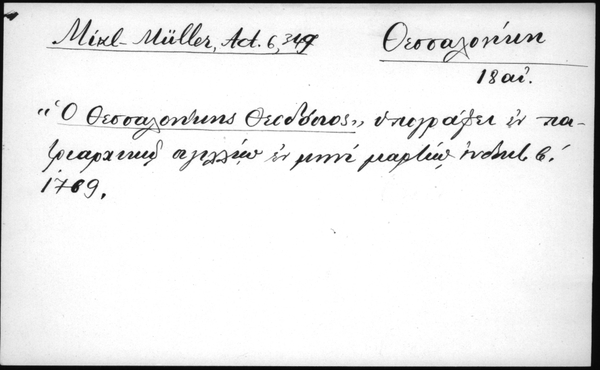 Mikl-Müller, Act. 6, 349
Θεσσαλονίκη
18 αἰ.
"Ὁ Θεσσαλονίκης Θεοδόσιος,, ὑπογράφει ἐν πα-
τριαρχικῷ σιγιλλίῳ ἐν μηνὶ μαρτίῳ ἰνδικτ β΄.
1769.